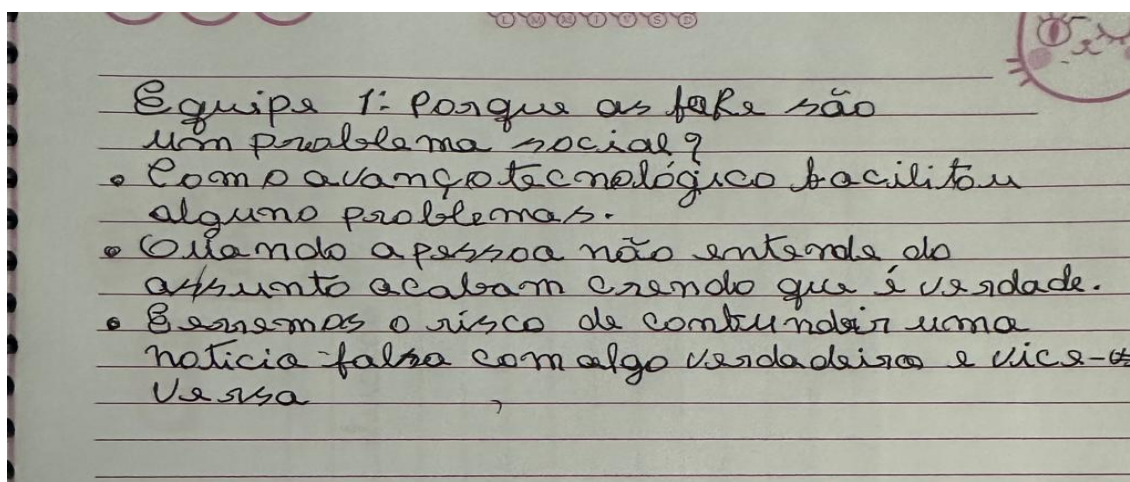 L M M J V S D
Equipe 1: Porque as fake são
um problema social?
• Com o avanço tecnológico facilitou
alguns problemas.
• Quando a pessoa não entende do
assunto acabam crendo que é verdade.
• Corremos o risco de confundir uma
noticia falsa com algo verdadeiro e vice-
versa